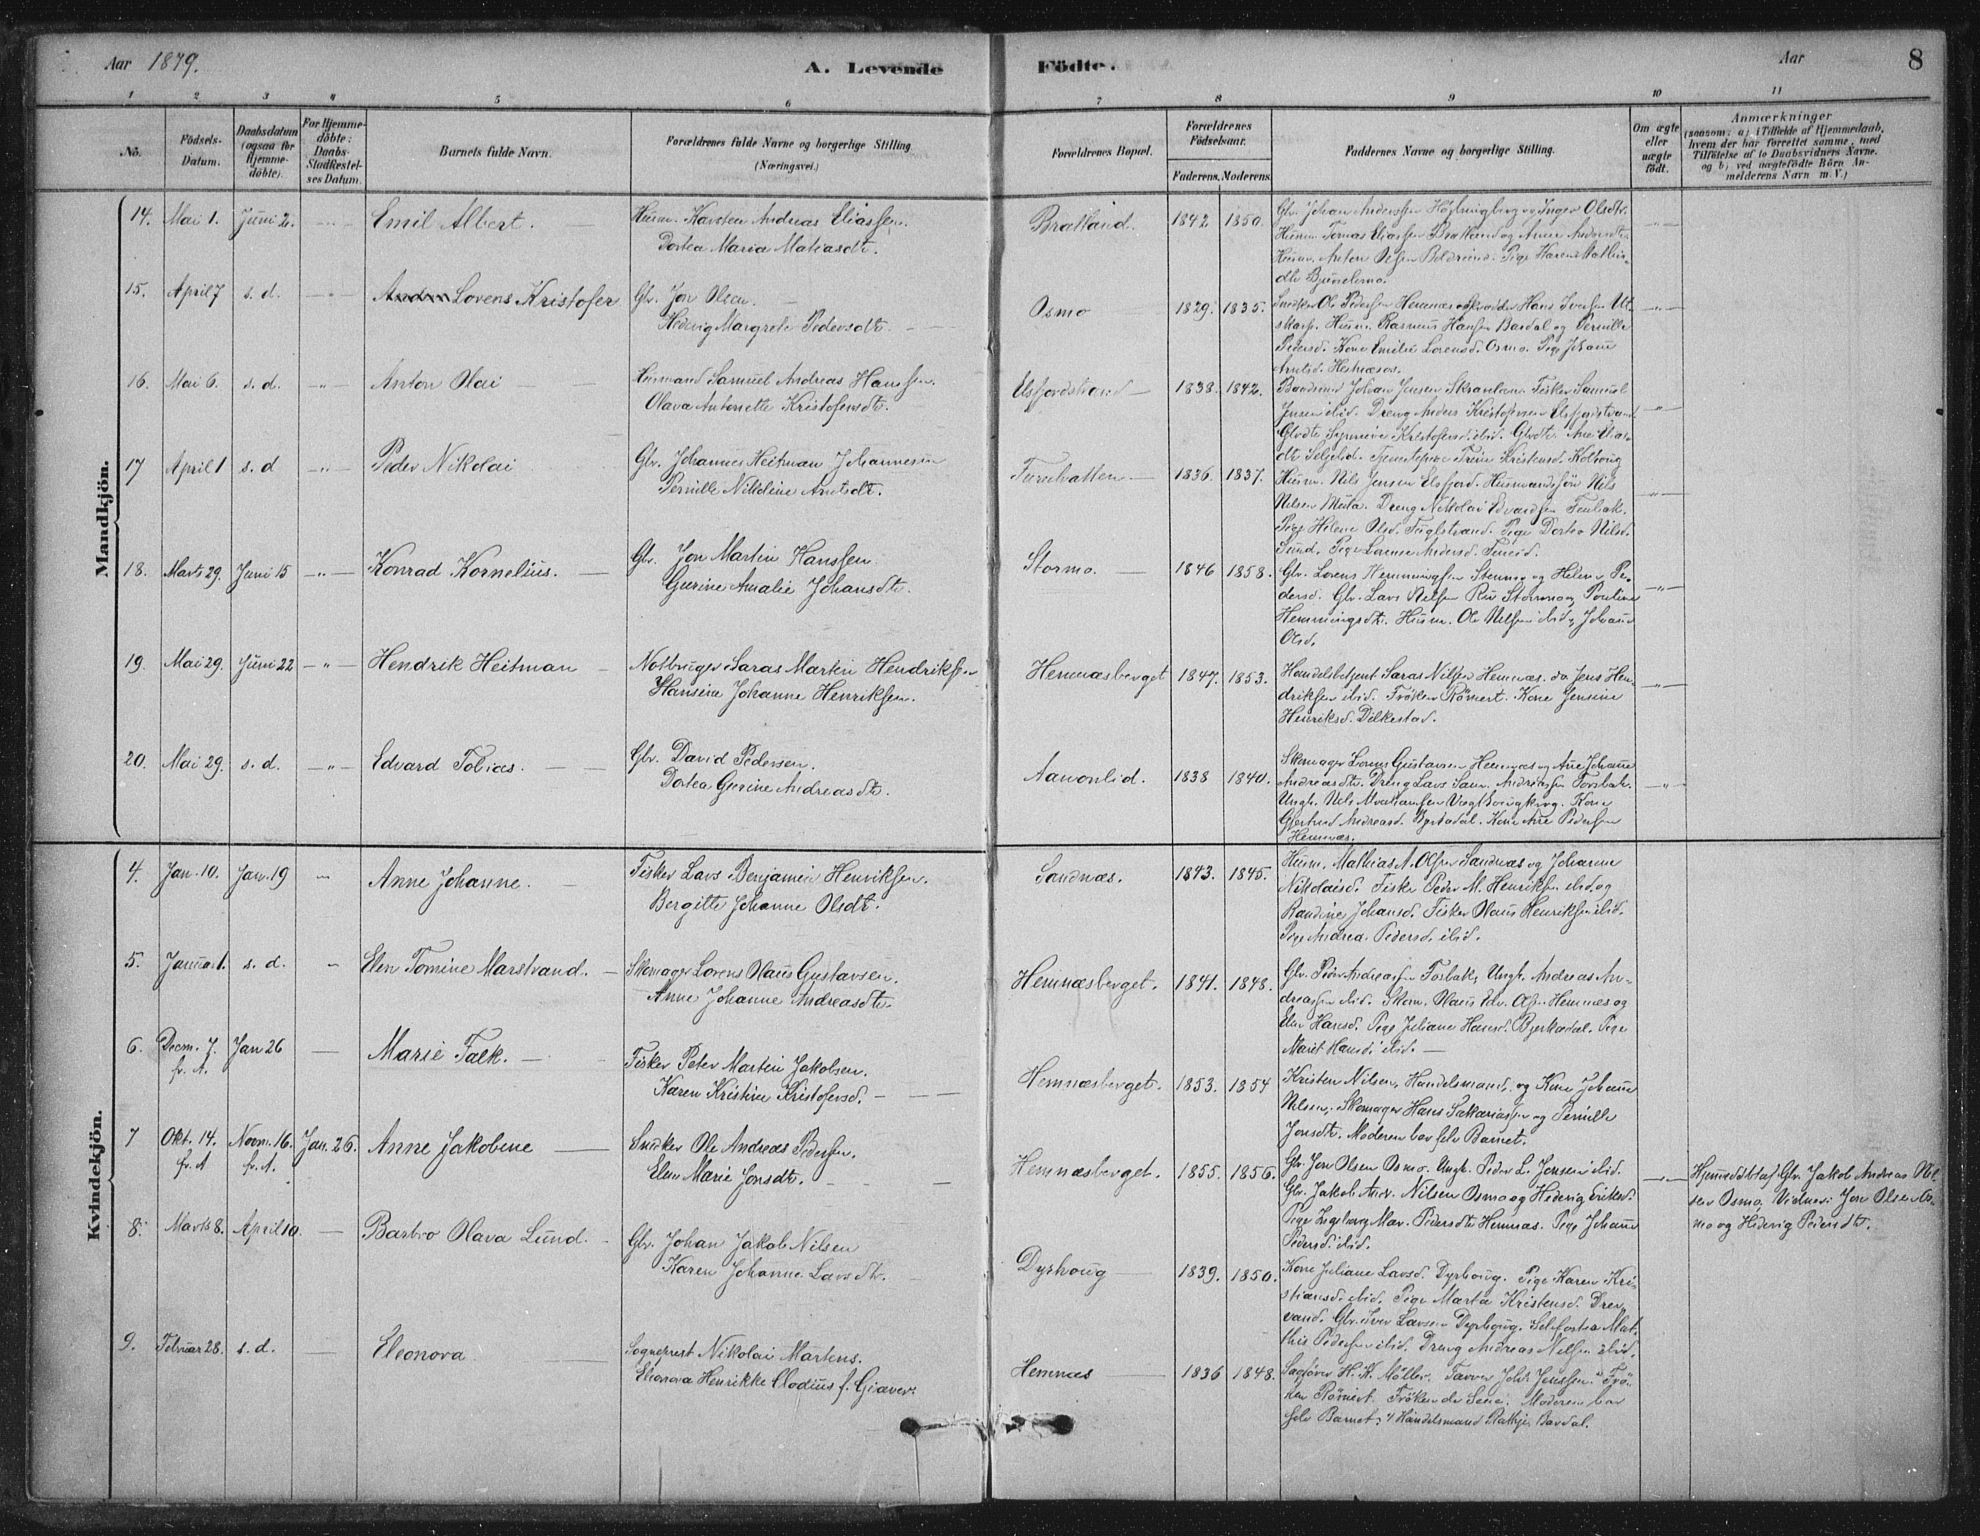 Aar 1879.
A. Levende Födte.
Aar
8
1 2 3 4 5 6 7 8 9 10 11
No.
Födsels-
Datum.
Daabsdatum
(ogsaa för
Hjemme-
döbte).
For Hjemme-
döbte:
Daabs-
Stadfæstel-
ses Datum.
Barnets fulde Navn.
Forældrenes fulde Navne og borgerlige Stilling
(Næringsvei.)
Forældrenes Bopæl.
Forældrenes
Födselsaar.
Faderens. Moderens.
Faddernes Navne og borgerlige Stilling.
Om ægte
eller
uægte
födt.
Anmærkninger
(saasom: a) i Tilfælde af Hjemmedaab,
hvem der har forrettet samme, med
Tilföielse af to Daabsvidners Navne.
og b) ved uægtefödte Börn An-
melderens Navn m.V.)
Mandkjön.
14. Mai 1. Juni 2. Emil Albert.
Husm. Karsten Andreas Eliassen.
Dortea Maria Matiasdt.
Bratland. 1842 1850.
Glv. Johan Anderssen og Inger Olsdtr.
Husm. Tomas Eliassen Bratland og Anne
Husm. Anton Olsen Pige Karen
15. April 7 s. d. Lorens Kristofer
Gbr. Jon Olsen.
Hedevig Margrete Pedersdt.
Osmo 1829. 1835.
Snedker Ole Pedersen Hemnæs Hans Iversen Ut-
skarp. Husm. Rasmus Hansen Bardal og Pernille
Pedersd. Kone Emilie Lorensd. Osmo. Pige Johanne
16. Mai 6. s. d. Anton Olai
Husmand Samuel Andreas Hanssen.
Olava Antonette Kristofersdt.
Elsfjordstrand 1838. 1842.
Johan Jensen Fisker Samuel
Jensen ibid. Dreng Anders Kristofersen Elsfjordstrand
Kristofersd. ibid.
17 April 1 s. d Peder Nikolai
Gbr. Johannes Heitman Johannesen
Pernille Nikoline Arntsdt.
1836. 1837.
Husm. Nils Jensen Elsfjord. Husmandssön Nils
Nilsen Dreng Nikolai Edvardsen
Pige Helene Olsd. Pige Dortea Nilsd.
Sund. Pige Lorense Andersd.
18. Marts 29. Juni 15 Konrad Kornelius.
Gbr. Jon Martin Hanssen
Gurine Amalie Johansdt.
Stormo. 1846 1858.
Gbr. Lorens Hemmingsen Stormo og Helene Pe-
dersd. Gbr. Lars Nilsen Stormo, Pauline
Hemmingsdt. Husm. Ole Nilsen ibid, Johanne
Olsd.
19. Mai 29. Juni 22 Hendrik Heitman
Notbruger Saras Martin Hendriksen
Hansine Johanne Henriksen.
Hemnæsberget 1847. 1853.
Handelsbetjent Saras Nilsen Hemnæs. do Jens Hen-
driksen ibid. Fröken Römert. Kone Jensine
Henriksd. Dilkestad.
20. Mai 29. s. d. Edvard Tobias.
Gbr. David Pedersen.
Dortea Gurine Andreasdt.
Aanonlid. 1838 1840.
Skomager Lorens Gustavsen Hemnæs og Ane Johanne
Andreasdt. Dreng Lars Andreassen Forsbak.
Ungk. Nils Kone
Gjertrud Andreasd. Kone Ane Pedersen
Hemnæs.
Kvindekjön.
4. Jan. 10. Jan. 19 Anne Johanne.
Fisker Lars Benjamin Henriksen.
Bergitte Johanne Olsdt.
Sandnæs. 1843. 1845.
Husm. Mathias A. Olsen Sandnæs og Johanne
Nikolaisd. Fisker Peder M. Henriksen ibid. og
Randine Johansd. Fisker Olaus Henriksen ibid.
Pige Andrea Pedersd. ibid.
5. Januar 1. s. d. Elen Tomine Marstrand.
Skomager Lorens Olaus Gustavsen.
Anne Johanne Andreasdt.
Hemnæsberget. 1841. 1848.
Gbr. Peder Andreassen Forsbak, Ungk. Andreas An-
dreassen ibid. Skom. Olaus Edv. Olsen Hemnæs og
Elen Hansd. Pige Juliane Hansd. Bjerkadal. Pige
Marit Hansd. ibid.
6. Decm. 7. f. A. Jan 26 Marie Falk.
Fisker Peter Martin Jakobsen.
Karen Kristine Kristofersd.
Hemnæsberget. 1853. 1854
Kristen Nilsen, Handelsmand, og Kone Johanne
Nilsen, Skomager Hans Sakariassen og Pernille
Jonsdt. Moderen bar selv Barnet.
7 Okt. 14. f. A Novm. 16. f. A. Jan. 26. Anne Jakobine
Snedker Ole Andreas Pedersen.
Elen Marie Jonsdt.
Hemnæsberget. 1855. 1856.
Gbr. Jon Olsen Osmo. Ungk. Peder L. Jensen ibid.
Gbr. Jakob Andr. Nilsen Osmo og Hedevig Eriksd.
Pige Ingeborg Mar. Pedersdt. Hemnæs. Pige Johanne
Pedersd. ibid.
Hjemmedöbt af Gbr. Jakob Andreas Nil-
sen Osmo, Vidner: Jon Olsen Os-
mo og Hedevig Pedersdt.
8. Marts 8. April 10. Barbro Olava Lund.
Gbr. Johan Jakob Nilsen
Karen Johanne Larsdt.
Dyrhoug 1839. 1850.
Kone Juliane Larsd. Dyrhoug. Pige Karen Kri-
stiansd. ibid. Pige Marta Kristensd. Drev-
vand. Gbr. Iver Larsen Dyrhoug. Mat-
this Pedersen ibid. Dreng Andreas Nilsen ibid.
9. Februar 28. s. d. Eleonora
Sogneprest Nikolai Martens.
Eleonora Henrikke Clodius f. Giæver.
Hemnæs 1836 1848.
Sagförer H. K. Möller. Farver Johs Jenssen. Frö-
ken Römert. Fröken de Seue. Moderen bar
selv Barnet. Handelsmand Bardal.